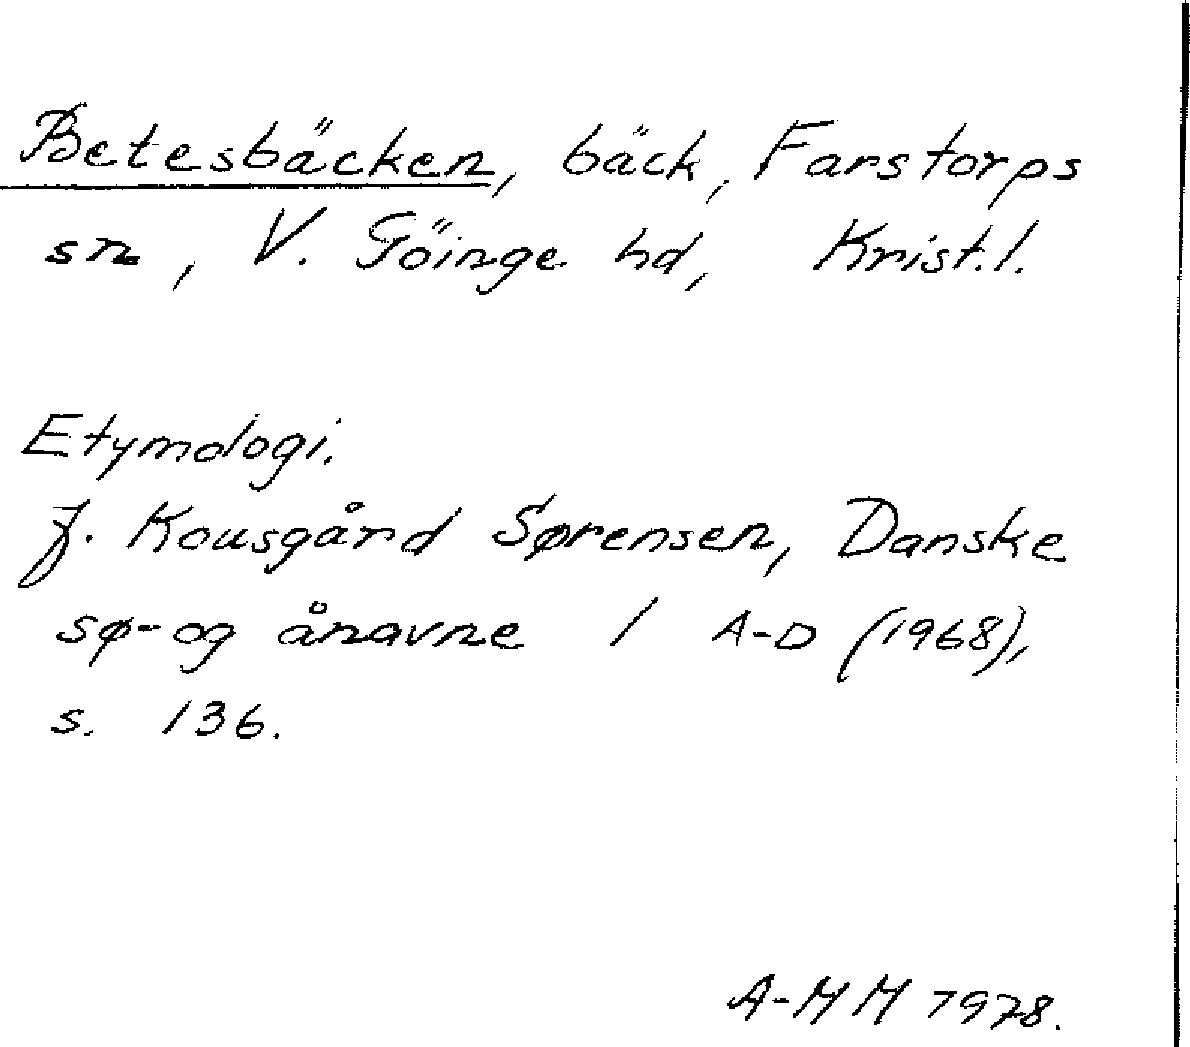 Betesbäcken, bäck, Farstorps
sn, V. Göinge hd, Krist.l.
Etymologi.
J. Kousgård Sørensen, Danske
sø- og ånavne 1 A-D (1968),
s. 136.
A-MM 1978.